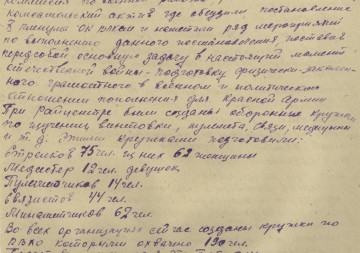 комсомольский актив где обсудили постановление
3 пленума ЦК ВЛКСМ и наметили ряд мероприятий
по выполнению данного постановления поставив
передовой основную задачу в настоящий момент
отечественной войны - подготовку физически-закален
ного грамотного в военном и политическом
отношении пополнения для Красной Армии
При Райцентре были созданы оборонные кружки
по изучению винтовки, пулемета, связи, медицины
и т.д. Этими кружками подготовили:
Стрелков 75 чел. из них 62 женщины
Медсестер 12 чел. девушек
Пулеметчиков 14 чел.
Связистов 44 чел.
Минаметчиков 62 чел.
Во всех организациях сейчас созданы кружки по
ПВХО которыми охвачено чел.